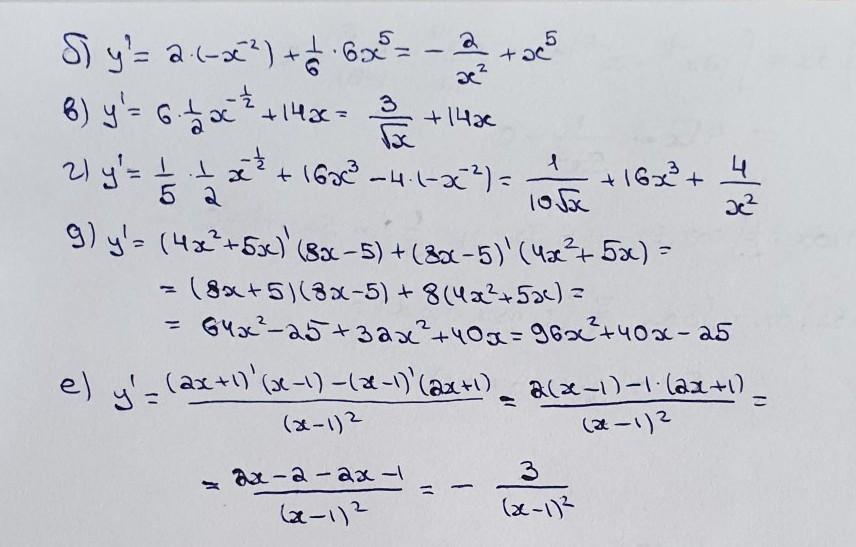 б) y' = 2·(-x⁻²) + 1/6 · 6x⁵ = - 2/x² + x⁵
в) y' = 6·1/2 x^(-1/2) + 14x = 3/√x + 14x
г) y' = 1/5 · 1/2 x^(-1/2) + 16x³ - 4·(-x⁻²) = 1/(10√x) + 16x³ + 4/x²
g) y' = (4x² + 5x)' (8x - 5) + (8x - 5)' (4x² + 5x) =
= (8x + 5)(8x - 5) + 8(4x² + 5x) =
= 64x² - 25 + 32x² + 40x = 96x² + 40x - 25
е) y' = ((2x+1)' (x-1) - (x-1)' (2x+1))/(x-1)² = (2(x-1) - 1·(2x+1))/(x-1)² =
= (2x - 2 - 2x - 1)/(x-1)² = - 3/(x-1)²